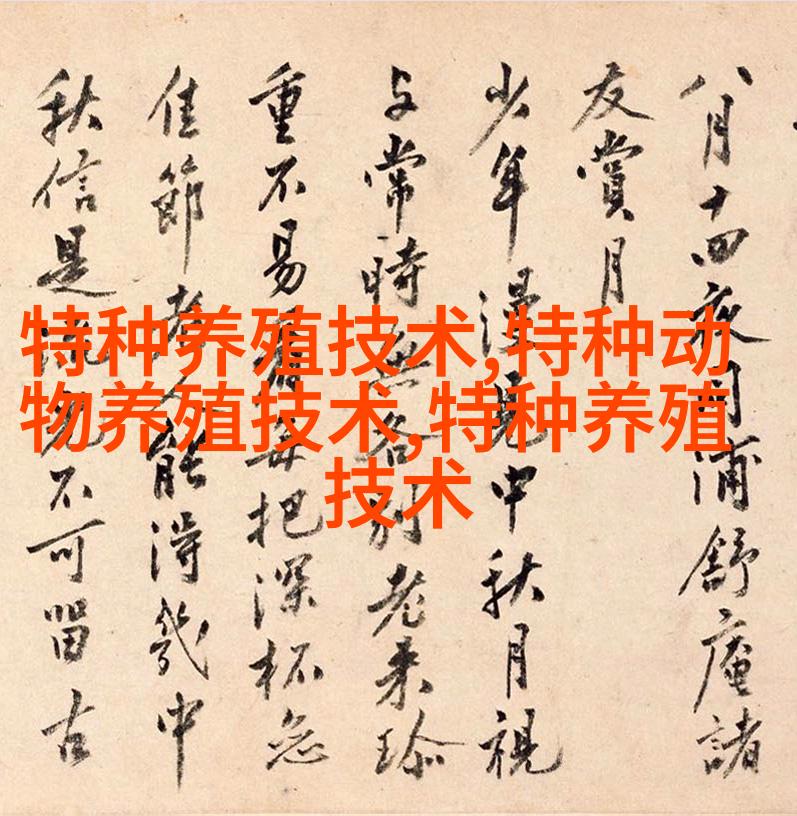 特种养殖技术,特种动
物养殖技术,特种养殖
技术
八月十四夜同浦舒庵諸
友賞月
少年漫見中秋月視
与常時無各別老来珍
重不易看每把深杯恋
佳節老人能得幾中
秋信是流光不可留古